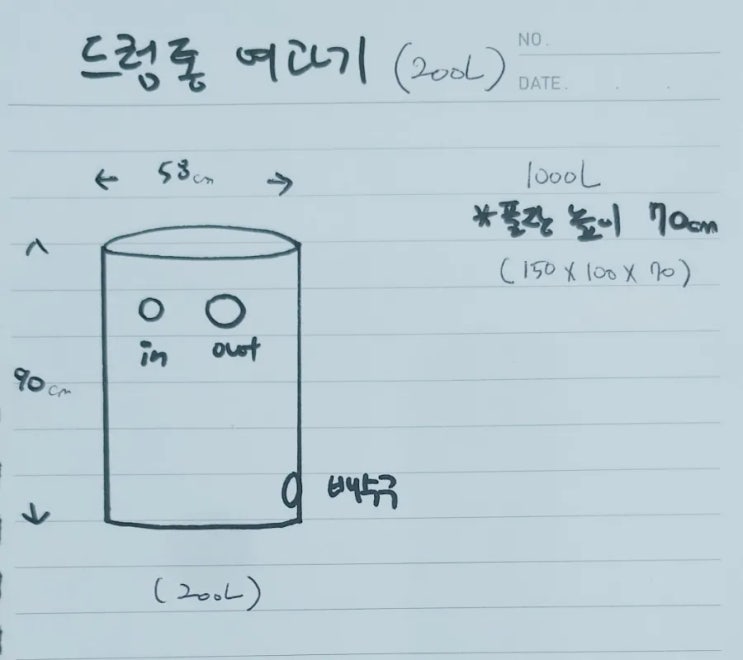 드럼통 여과기 (200L)
NO.
DATE.
58cm
1000L
*풀장 높이 70cm
(150 X 100 X 70)
in out
90cm
배수구
(200L)